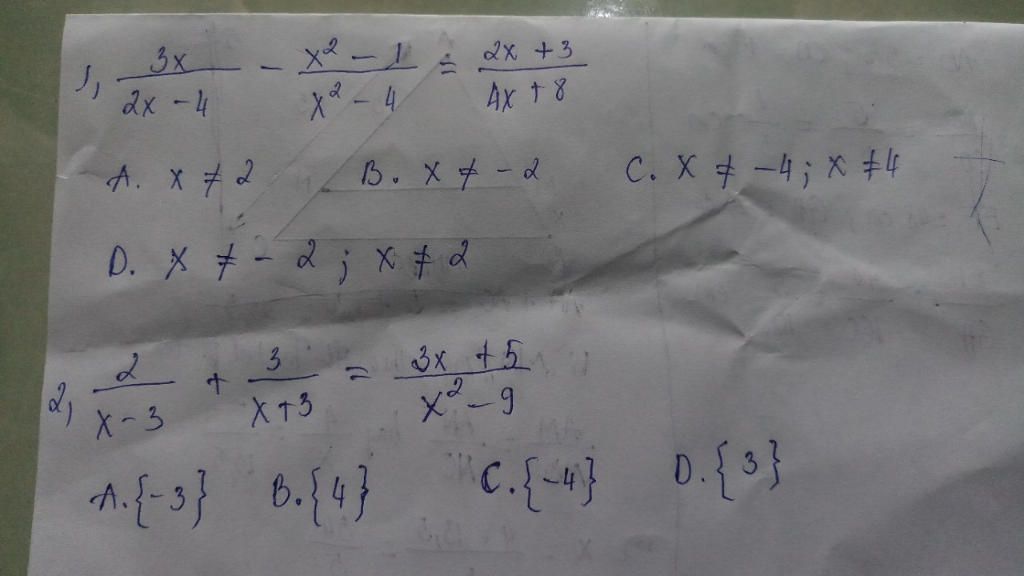 1, 3x/(2x - 4) - (x² - 1)/(x² - 4) = (2x + 3)/(4x + 8)
A. x ≠ 2 B. x ≠ -2 C. x ≠ -4; x ≠ 4
D. x ≠ -2; x ≠ 2
2, 2/(x - 3) + 3/(x + 3) = (3x + 5)/(x² - 9)
A. {-3} B. {4} C. {-4} D. {3}